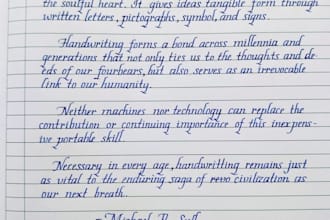 the soulful heart. It gives ideas tangible form through
written letters, pictographs, symbol, and signs.
Handwriting forms a bond across millennia and
generations that not only ties us to the thoughts and de-
eds of our fourbears, but also serves as an irrevocable
link to our humanity.
Neither machines nor technology can replace the
contribution or continuing importance of this inexpens-
ive portable skill.
Necessary in every age, handwritting remains just
as vital to the enduring saga of revo civilization as
our next breath.
- Michael R.